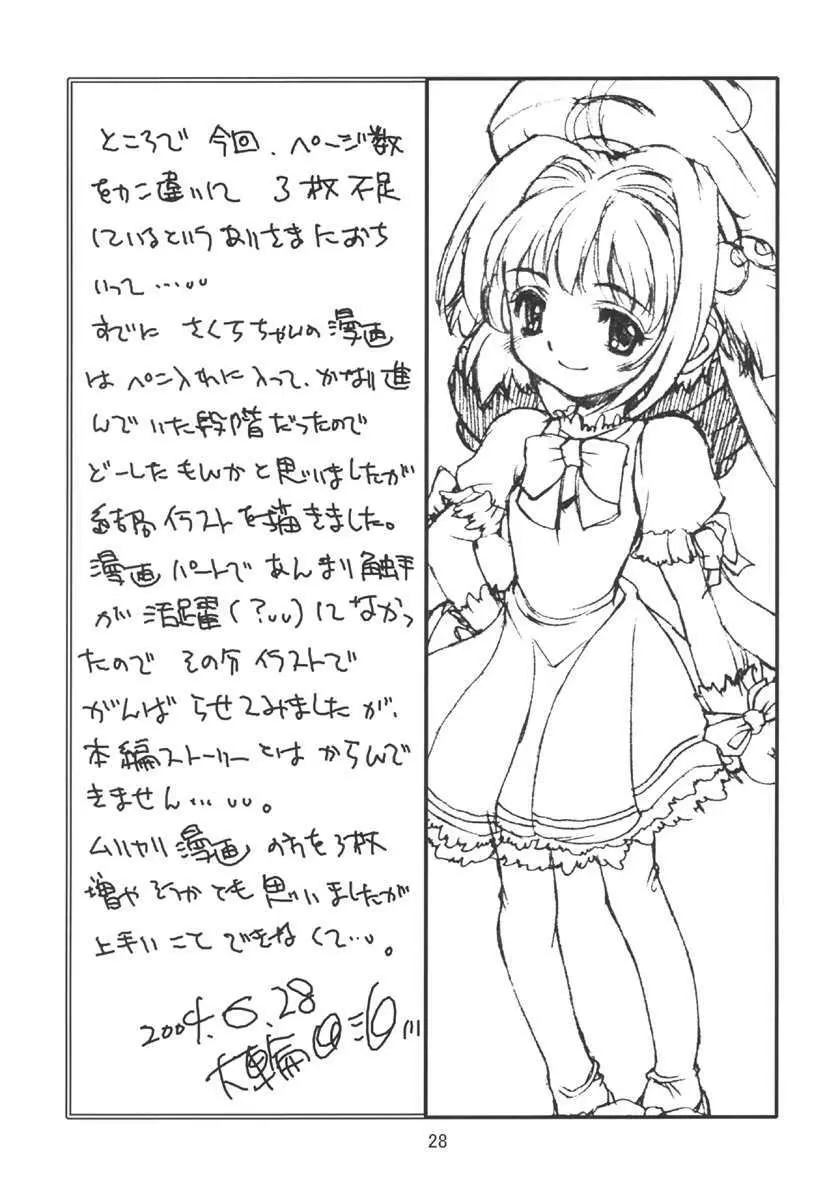 ところで 今回、ページ数
をかん違いして 3枚不足
しているというありさまにおち
いって…
すでに さくらちゃんの漫画
はペン入れに入って、かなり進
んでいた段階だったので
どーしたもんかと思いましたが
結局イラストを描きました。
漫画パートであんまり触手
が活躍(?)してなかっ
たので その分イラストで
がんばらせてみましたが、
本編ストーリーとはからんで
きません…。
ムリヤリ漫画の方を3枚
増やそうかとも思いましたが
上手いことできなくて…。
2004.6.28
28